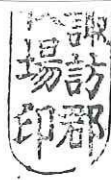 諏訪郡
場印